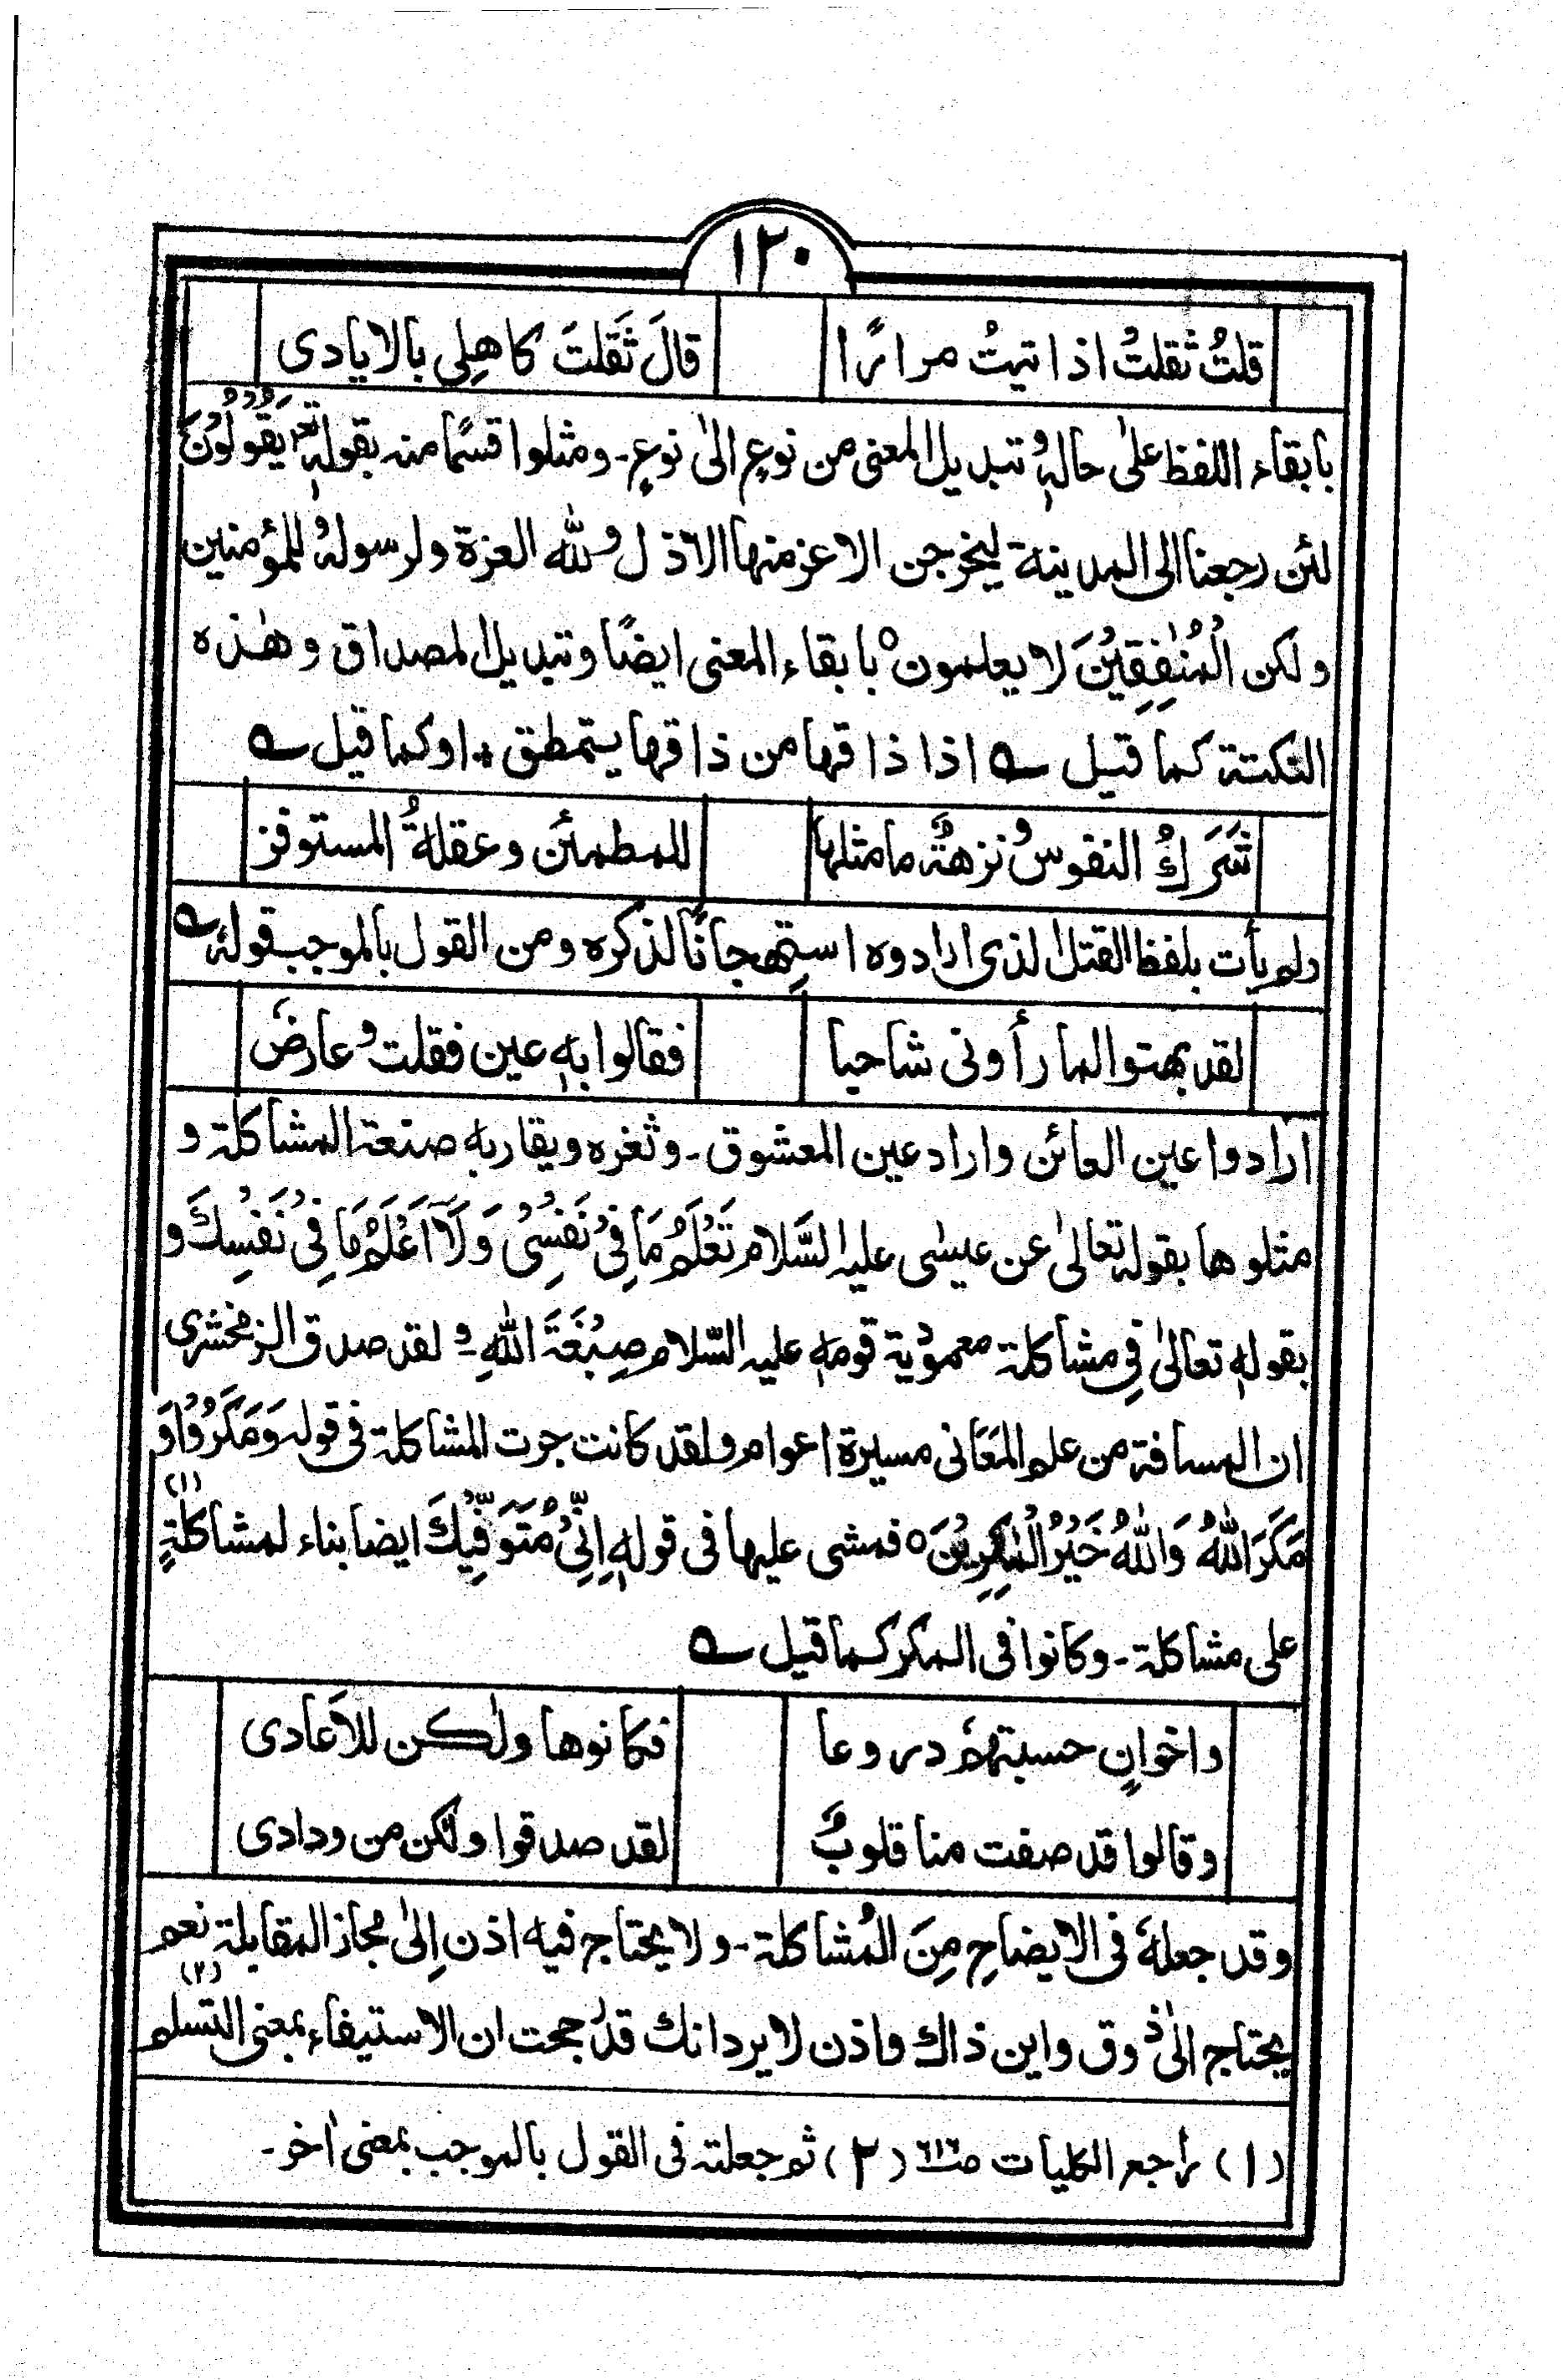 ١٢٠
قلتُ ثقلتُ اذا تيتُ مرارًا قالَ ثَقلتَ كاهِلِی بالایادی
بابقاء اللفظ علیٰ حالهٖ و تبدیل المعنی من نوعٍ الیٰ نوعٍ۔ ومثلوا قسمًا منه بقولهٖ تعالیٰ یَقُوْلُوْنَ
لئن رجعنا الی المدینة لیخرجن الاعز منها الاذل و لله العزة ولرسوله و للمؤمنین
ولکن الْمُنٰفِقِیْنَ لا یعلمون ٥ بابقاء المعنی ایضًا وتبدیل المصداق وهٰذه
النکتة کما قیل ؎ اذا ذاقها من ذاقها یتمطق ٭ اوکما قیل ؎
شَرَكُ النفوس و نزهةٌ ما مثلها للمطمئن وعقلةُ المستوفز
ولم یأت بلفظ القتل الذی ارادوه استهجانًا لذکره ومن القول بالموجب قولهٗ ؎
لقد بهتوا لما رأونی شاحبا فقالوا بهٖ عین فقلت و عارضٗ
ارادوا عین العائن واراد عین المعشوق۔ وثغره ویقاربه صنعة المشاکلة و
مثلوها بقوله تعالیٰ عن عیسٰی علیه السَّلام تَعْلَمُ مَا فِیْ نَفْسِیْ وَلَآ اَعْلَمُ مَا فِیْ نَفْسِكَ و
بقولهٖ تعالیٰ فی مشاکلة معمودیة قومهٖ علیه السّلام صِبْغَةَ اللهِ۔ و لقد صدق الزمخشری
ان المسافة من علم المَعَانی مسیرة اعوام ولقد کانت جرت المشاکلة فی قوله وَمَکَرُوْا وَ
مَکَرَ اللهُ وَاللهُ خَیْرُ الْمٰکِرِیْنَ ٥ فمشی علیها فی قولهٖ اِنِّیْ مُتَوَفِّیْكَ ایضا بناء لمشاکلةٍ (١)
علی مشاکلة۔ وکانوا فی المکر کما قیل ؎
واخوانٍ حسبتهم دروعا فکانوها ولٰکن للاَعادی
وقالوا قد صفت منا قلوبٌ لقد صدقوا ولکن من ودادی
وقد جعلهٗ فی الایضاحِ مِنَ الْمُشاکلة۔ ولا یحتاج فیه اذن اِلیٰ مجاز المقابلة نعم
یحتاج الیٰ ذوق واین ذاك واذن لا یرد انك قد رجحت ان الاستیفاء بمعنی التسلم (٢)
(١) راجع الکلیات صـ٦١٦ (٢) ثم جعلته فی القول بالموجب بمعنی اٰخر۔